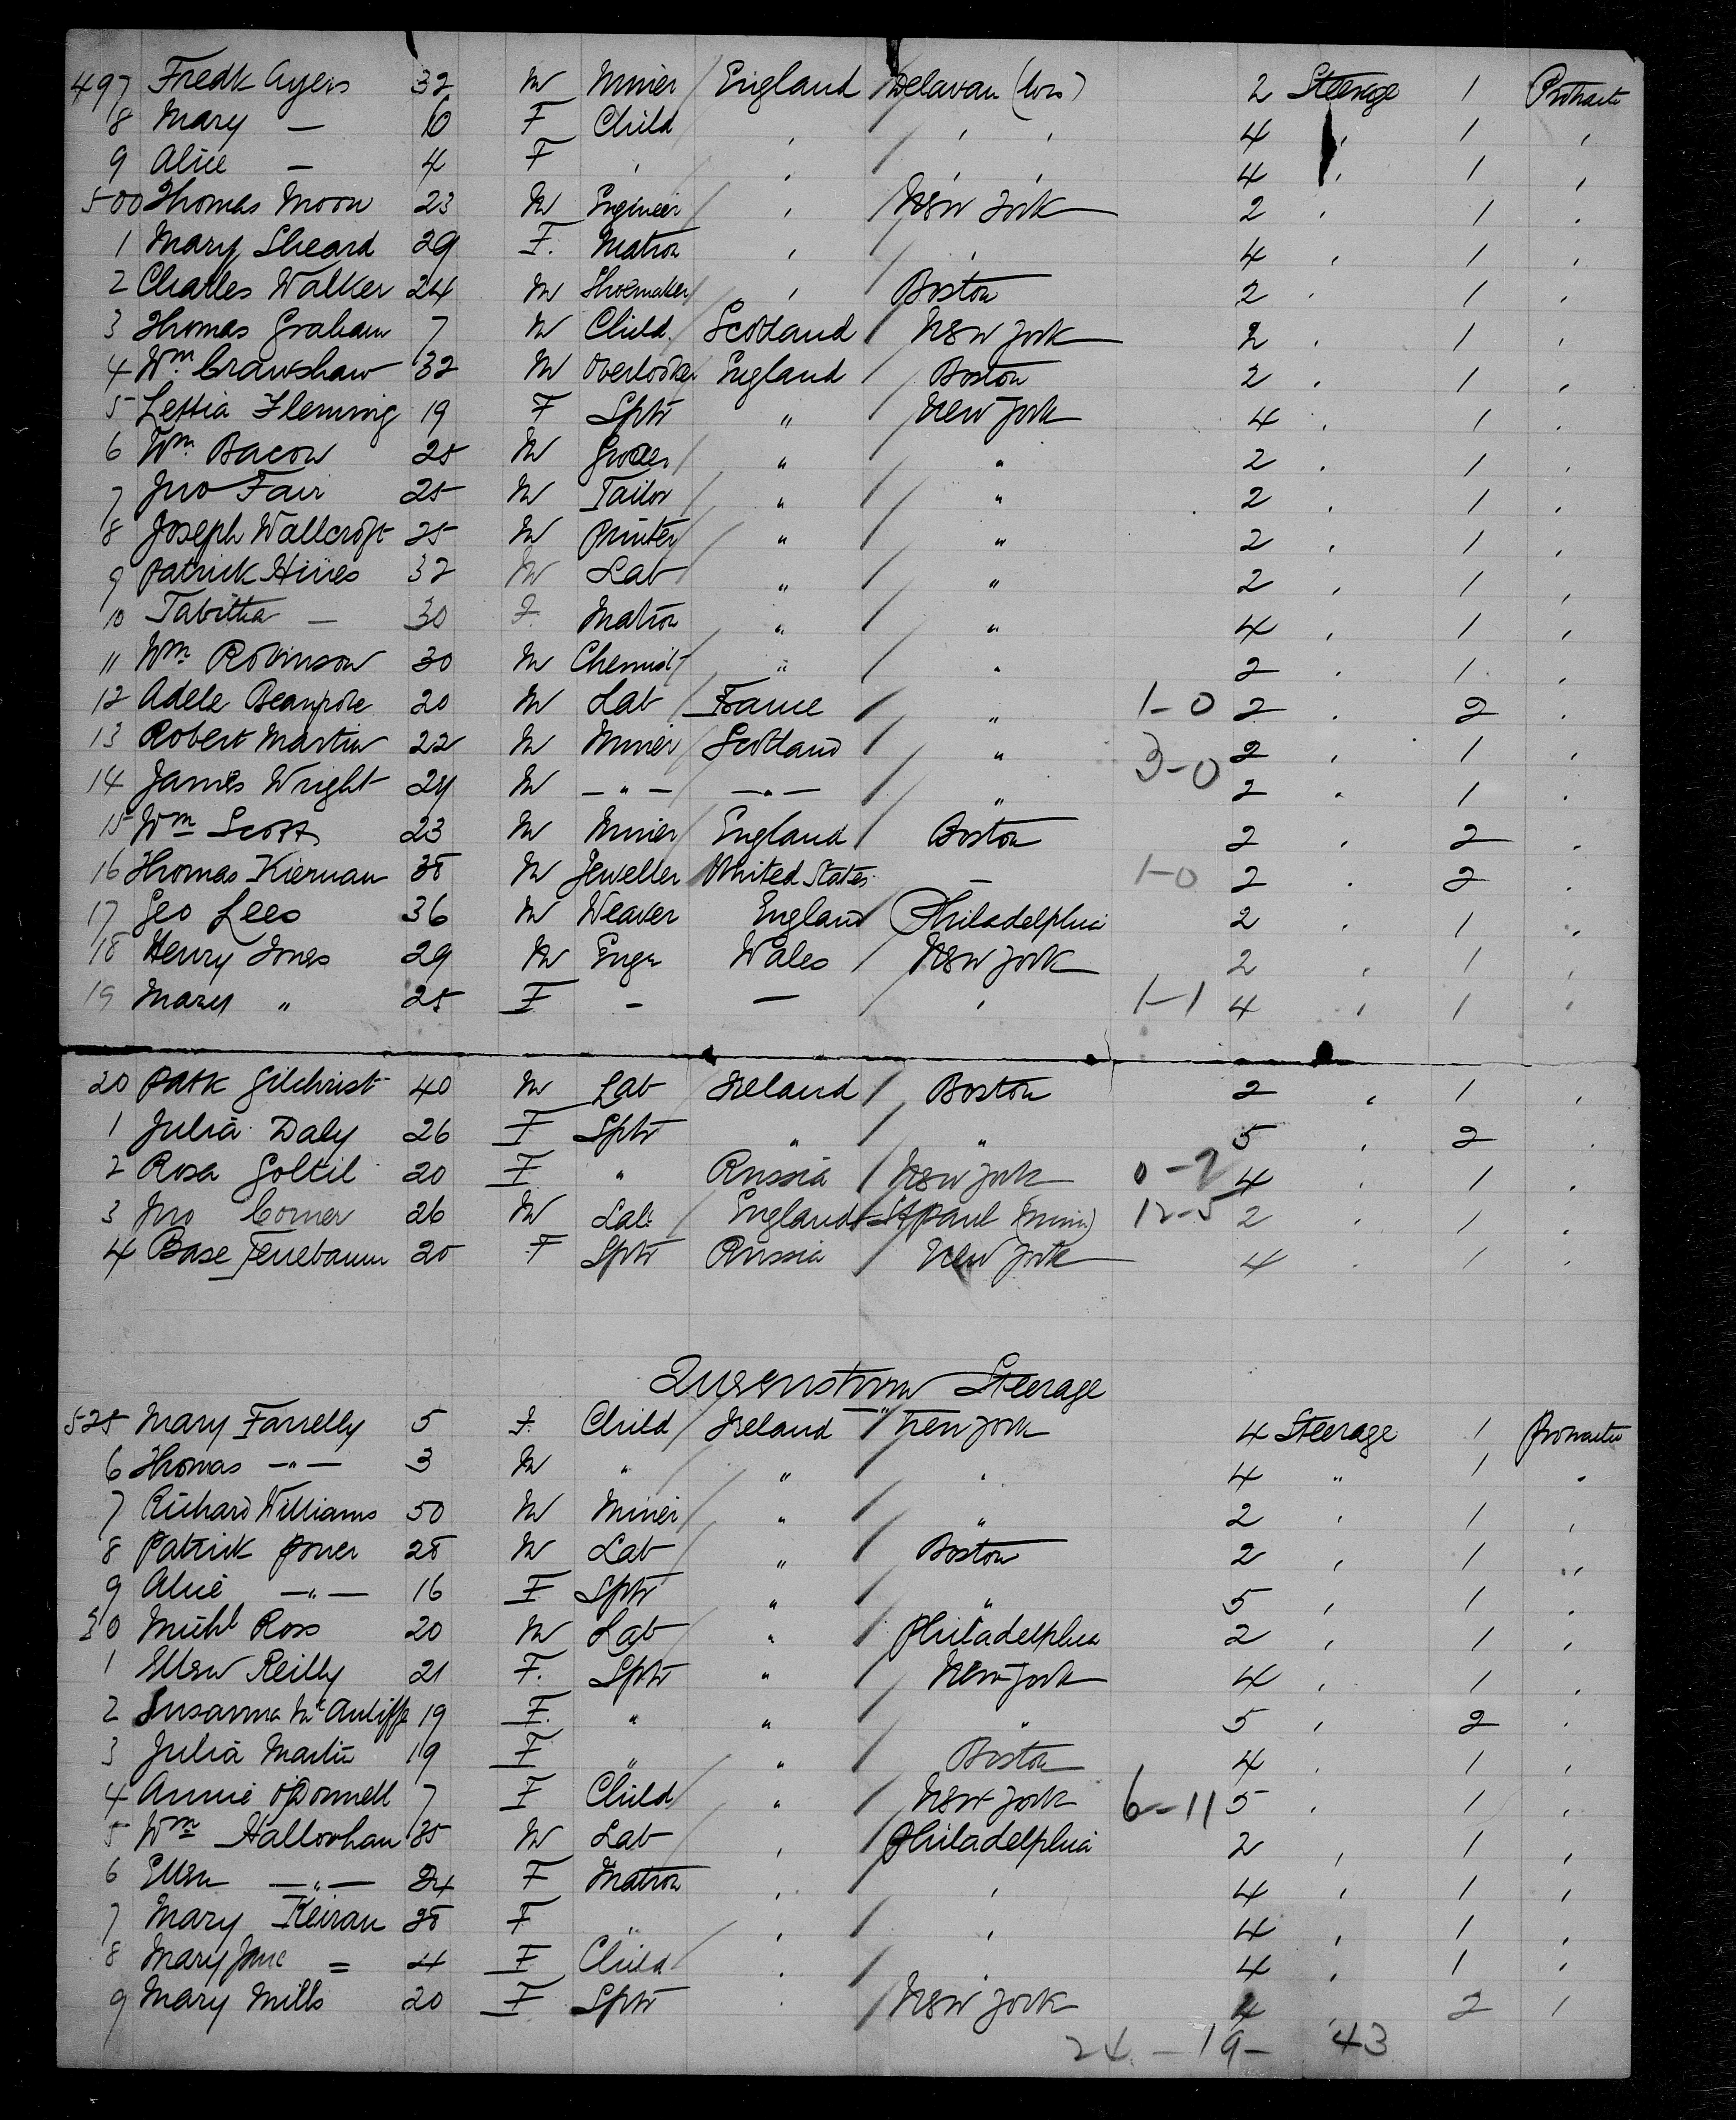 497 Fredk Ayers 32 M Miner England Delavan 2 Steerage 1 Protracted
8 Mary — 10 F Child , , , 4 , 1 ,
9 Alice — 4 F , , , , 4 , 1 ,
500 Thomas Moon 23 M Engineer , New York 2 , 1 ,
1 Mary Sheard 29 F. Matron , , 4 , 1 ,
2 Charles Walker 24 M Shoemaker , Boston 2 , 1 ,
3 Thomas Graham 7 M Child Scotland New York 2 , 1 ,
4 Wm Crawshaw 32 M Overlooker England Boston 2 , 1 ,
5 Lettia Fleming 19 F Sptr " New York 4 , 1 ,
6 Wm Bacon 25 M Grocer " " 2 , 1 ,
7 Jno Fair 25 M Tailor " " 2 , 1 ,
8 Joseph Wallcroft 25 M Printer " " 2 , 1 ,
9 Patrick Hines 32 M Lab " " 2 , 1 ,
10 Tabitha — 30 F. Matron " " 4 , 1 ,
11 Wm Robinson 30 M Chemist " " 2 , 1 ,
12 Adele 20 M Lab France " 1-0 2 , 2 ,
13 Robert Martin 22 M Miner Scotland " 2 , 1 ,
14 James Wright 24 M — " — — " — " 3-0 2 , 1 ,
15 Wm Scott 23 M Miner England Boston 2 , 2 ,
16 Thomas Kiernan 38 M Jeweller United States — 1-0 2 , 2 ,
17 Geo Lees 36 M Weaver England Philadelphia 2 , 1 ,
18 Henry Jones 29 M Engr Wales New York 2 , 1 ,
19 Mary " 25 F - — , 1-1 4 , 1 ,
20 Patk Gilchrist 40 M Lab Ireland Boston 2 , 1 ,
1 Julia Daly 26 F Sptr " " 5 , 2 ,
2 Rosa Goltil 20 F " Russia New York 0-2 4 , 1 ,
3 Jno Corner 26 M Lab. England St Paul (Minn) 12-5 2 , 1 ,
4 Base Tenebaum 20 F Sptr Russia New York 4 , 1 ,
Queenstown Steerage
525 Mary Farrelly 5 F. Child Ireland New York 4 Steerage 1 Protracted
6 Thomas — " — 3 M " " " 4 " 1 "
7 Richard Williams 50 M Miner " " 2 , 1 ,
8 Patrick Power 28 M Lab " Boston 2 , 1 ,
9 Alice — " — 16 F Sptr " " 5 , 1 ,
30 Michl Ross 20 M Lab " Philadelphia 2 , 1 ,
1 Ellen Reilly 21 F. Sptr " New York 4 , 1 ,
2 Susanna McAuliffe 19 F. " " " 5 , 2 ,
3 Julia Martin 19 F " " Boston 4 , 1 ,
4 Annie O'Donnell 7 F Child " New York 6-11 5 , 1 ,
5 Wm Hallorhan 35 M Lab , Philadelphia 2 , 1 ,
6 Ellen — " — 34 F Matron , , 4 , 1 ,
7 Mary Keiran 38 F " , , 4 , 1 ,
8 Mary Jane = 4 F Child , , 4 , 1 ,
9 Mary Mills 20 F Sptr , New York 4 , 2 ,
24 - 19 - 43